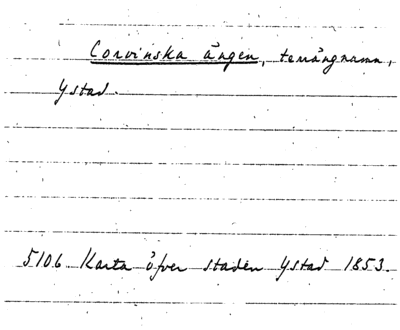 Corvinska ängen, terrängnamn,
Ystad.
5106 Karta öfver staden Ystad 1853.